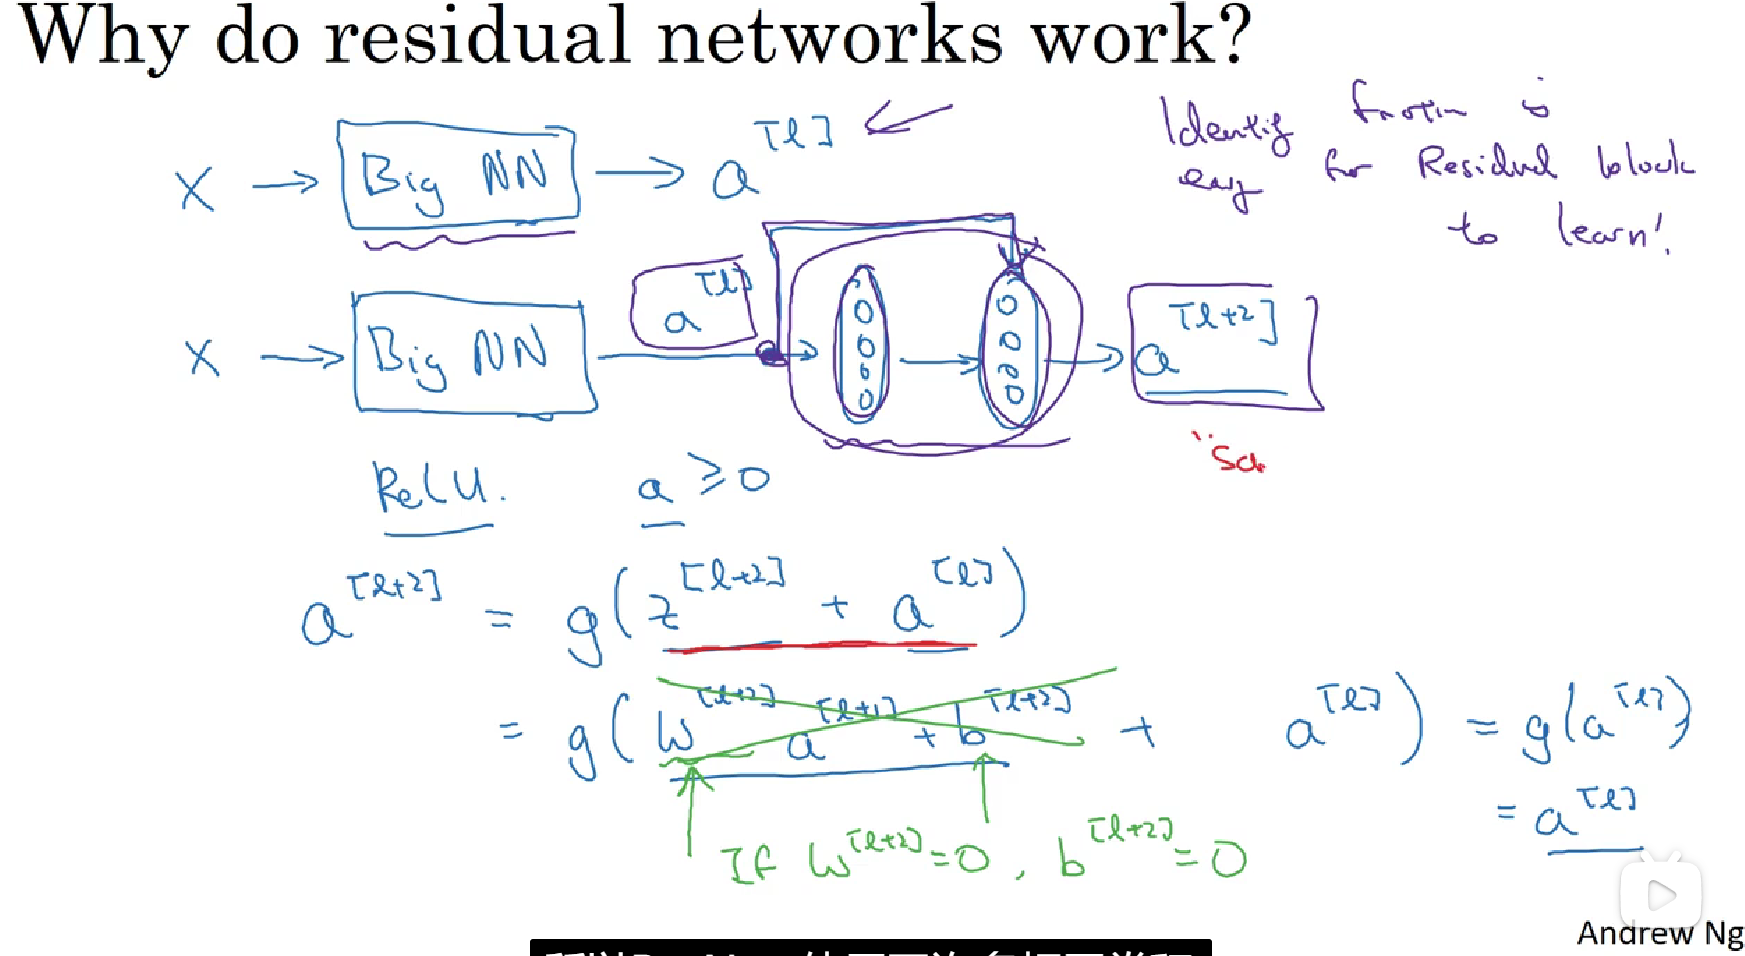 Why do residual networks work?
Identity function is
easy for Residual block
to learn!
X → Big NN → a^[l]
X → Big NN → a^[l] → → a^[l+2]
"Sa
ReLU. a ≥ 0
a^[l+2] = g(z^[l+2] + a^[l])
= g(W^[l+2] a^[l+1] + b^[l+2] + a^[l]) = g(a^[l])
= a^[l]
If W^[l+2] = 0, b^[l+2] = 0
Andrew Ng